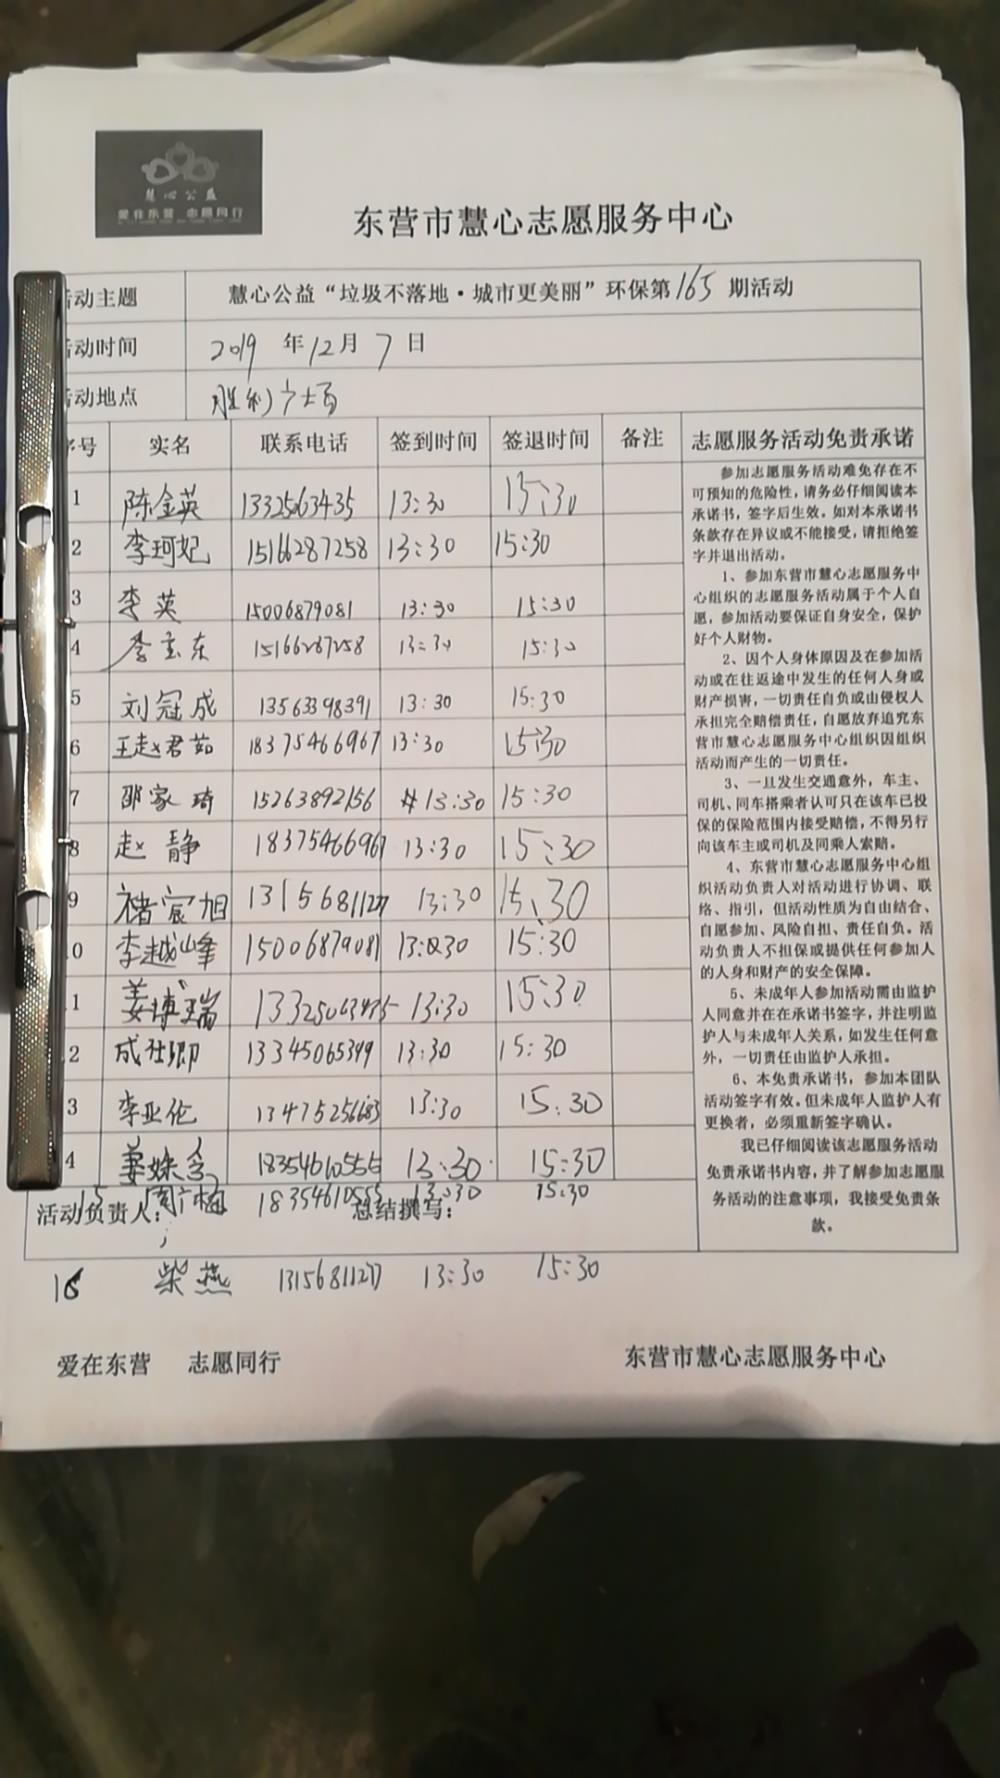 慧心公益
爱在东营 志愿同行
东营市慧心志愿服务中心
活动主题 慧心公益“垃圾不落地·城市更美丽”环保第165期活动
活动时间 2019年12月7日
活动地点 胜利广场
序号 实名 联系电话 签到时间 签退时间 备注 志愿服务活动免责承诺
1 陈金英 13325063435 13:30 15:30
2 李珂妃 15166287258 13:30 15:30
3 李英 15006879081 13:30 15:30
4 李宝东 15166287258 13:30 15:30
5 刘冠成 13563398391 13:30 15:30
6 王赵君茹 18375466967 13:30 15:30
7 邵家琦 15263892156 13:30 15:30
8 赵静 18375466967 13:30 15:30
9 褚宸旭 13156811277 13:30 15:30
10 李越峰 15006879081 13:30 15:30
11 姜博瑞 13325063435 13:30 15:30
12 成社卿 13345065399 13:30 15:30
13 李亚伦 13475256683 13:30 15:30
14 姜姝含 18354610555 13:30 15:30
15 周广梅 18354610555 13:30 15:30
活动负责人: 总结撰写:
16 柴燕 13156811277 13:30 15:30
参加志愿服务活动难免存在不
可预知的危险性,请务必仔细阅读本
承诺书,签字后生效。如对本承诺书
条款存在异议或不能接受,请拒绝签
字并退出活动。
1、参加东营市慧心志愿服务中
心组织的志愿服务活动属于个人自
愿,参加活动要保证自身安全,保护
好个人财物。
2、因个人身体原因及在参加活
动或在往返途中发生的任何人身或
财产损害,一切责任自负或由侵权人
承担完全赔偿责任,自愿放弃追究东
营市慧心志愿服务中心组织因组织
活动而产生的一切责任。
3、一旦发生交通意外,车主、
司机、同车搭乘者认可只在该车已投
保的保险范围内接受赔偿,不得另行
向该车主或司机及同乘人索赔。
4、东营市慧心志愿服务中心组
织活动负责人对活动进行协调、联
络、指引,但活动性质为自由结合、
自愿参加、风险自担、责任自负。活
动负责人不担保或提供任何参加人
的人身和财产的安全保障。
5、未成年人参加活动需由监护
人同意并在在承诺书签字,并注明监
护人与未成年人关系,如发生任何意
外,一切责任由监护人承担。
6、本免责承诺书,参加本团队
活动签字有效。但未成年人监护人有
更换者,必须重新签字确认。
我已仔细阅读该志愿服务活动
免责承诺书内容,并了解参加志愿服
务活动的注意事项,我接受免责条
款。
爱在东营 志愿同行 东营市慧心志愿服务中心